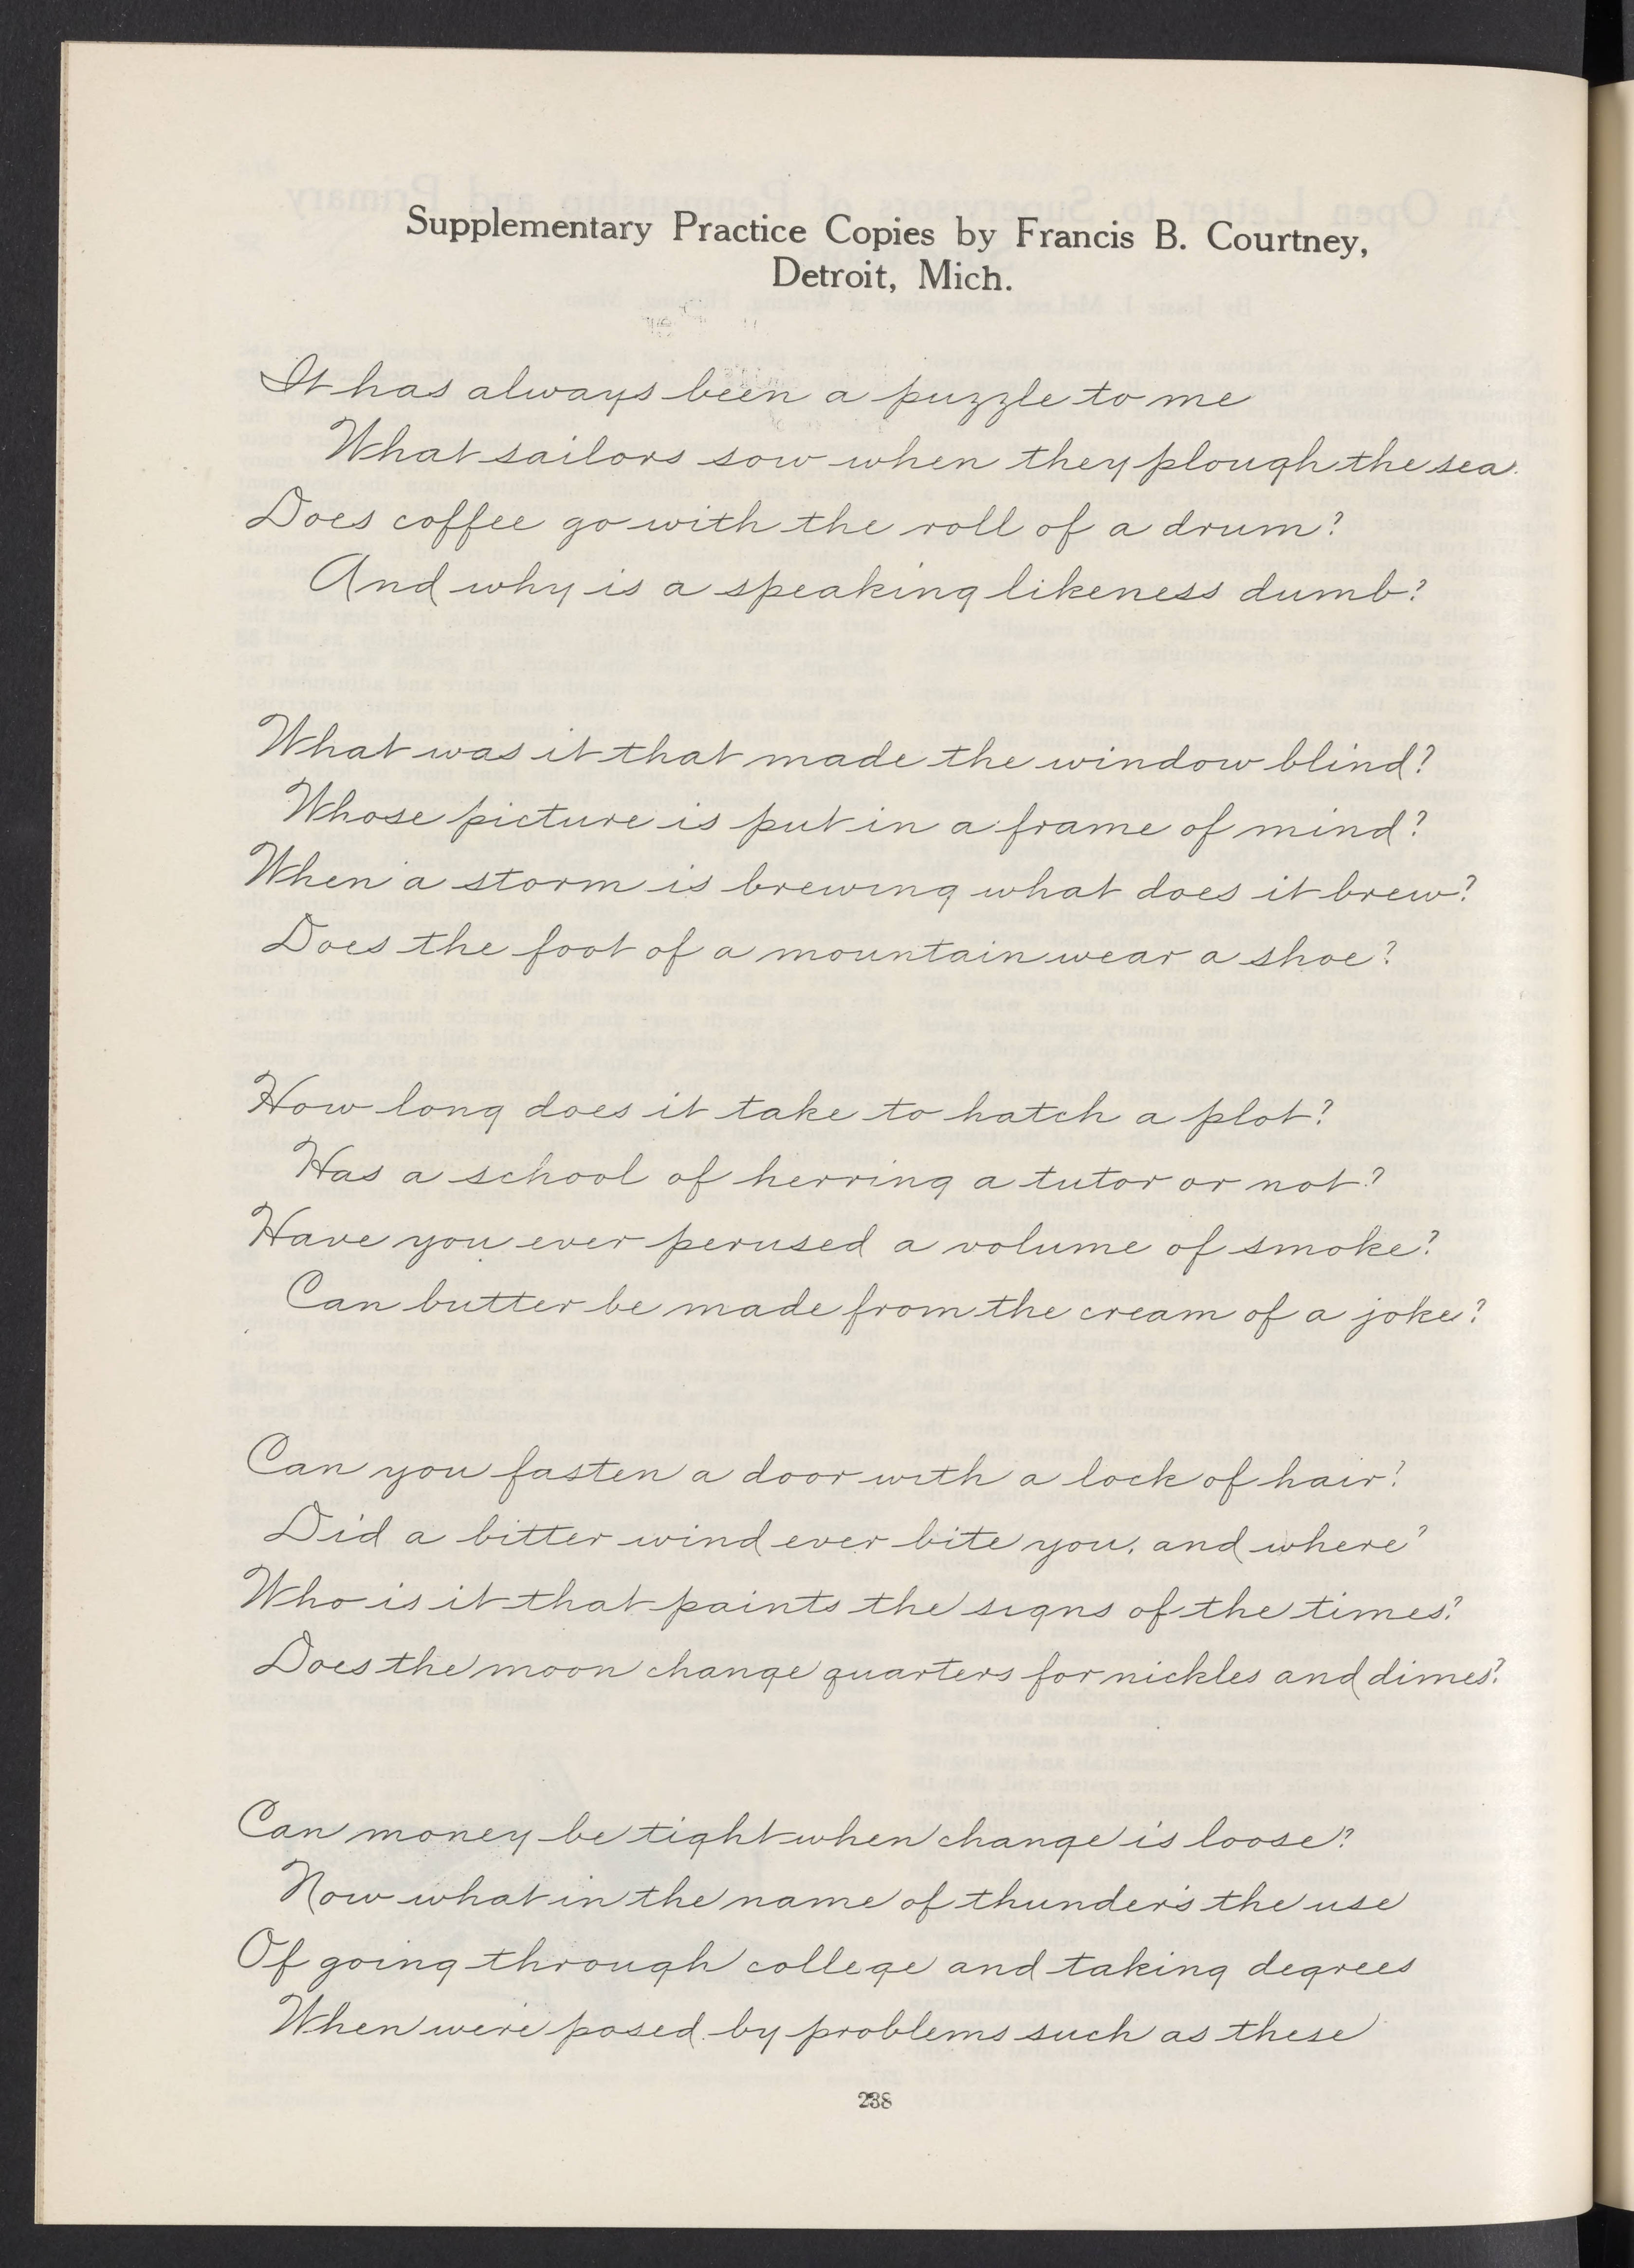 Supplementary Practice Copies by Francis B. Courtney,
Detroit, Mich.
It has always been a puzzle to me
What sailors sow when they plough the sea.
Does coffee go with the roll of a drum?
And why is a speaking likeness dumb?
What was it that made the window blind?
Whose picture is put in a frame of mind?
When a storm is brewing what does it brew?
Does the foot of a mountain wear a shoe?
How long does it take to hatch a plot?
Has a school of herring a tutor or not?
Have you ever perused a volume of smoke?
Can butter be made from the cream of a joke?
Can you fasten a door with a lock of hair?
Did a bitter wind ever bite you, and where?
Who is it that paints the signs of the times?
Does the moon change quarters for nickles and dimes?
Can money be tight when change is loose?
Now what in the name of thunder's the use
Of going through college and taking degrees
When we're posed by problems such as these
238